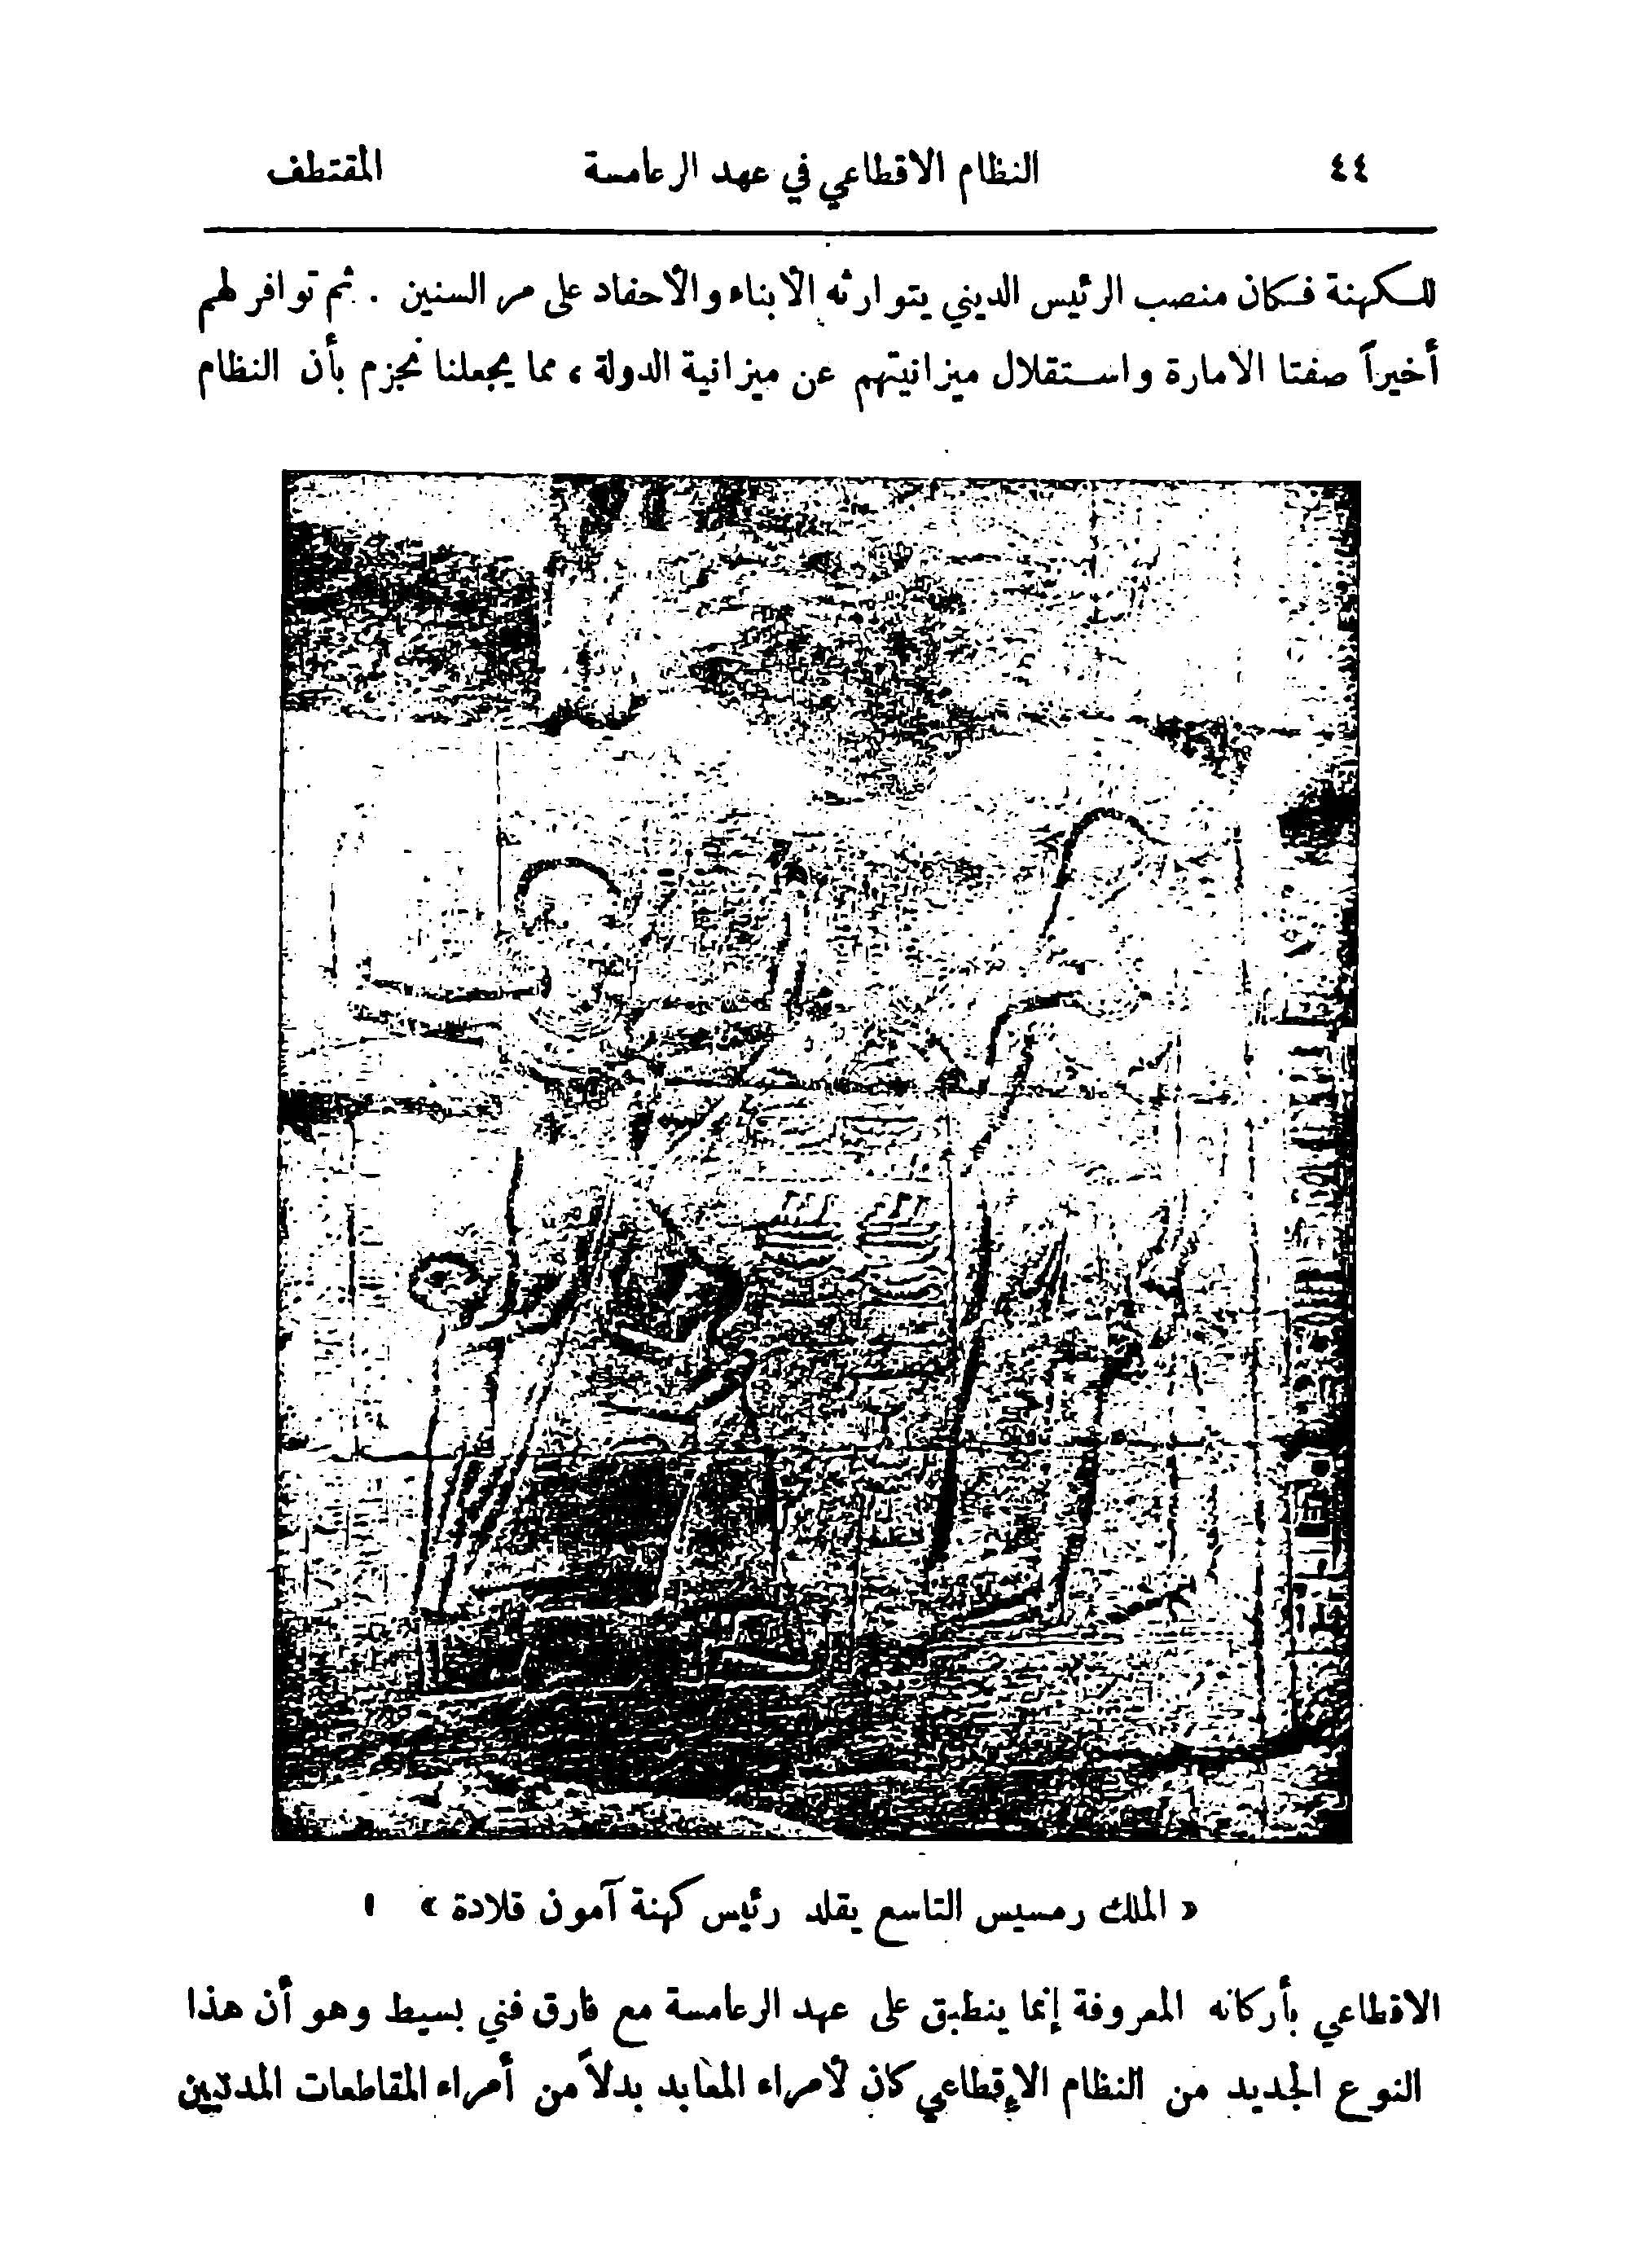 ٤٤ النظام الاقطاعي في عهد الرعامسة المقتطف
للكهنة فكان منصب الرئيس الديني يتوارثه الأبناء والأحفاد على مر السنين . ثم توافر لهم
أخيراً صفتا الامارة واستقلال ميزانيتهم عن ميزانية الدولة ، مما يجعلنا نجزم بأن النظام
« الملك رمسيس التاسع يقلد رئيس كهنة آمون قلادة »
الاقطاعي بأركانه المعروفة إنما ينطبق على عهد الرعامسة مع فارق فني بسيط وهو أن هذا
النوع الجديد من النظام الإقطاعي كان لأمراء المعابد بدلاً من أمراء المقاطعات المدنيين